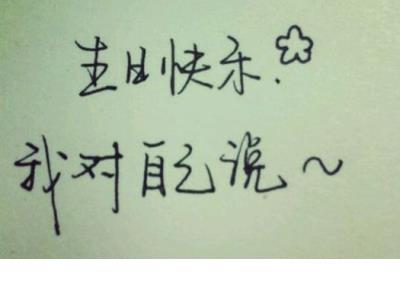 生日快乐!
我对自己说~